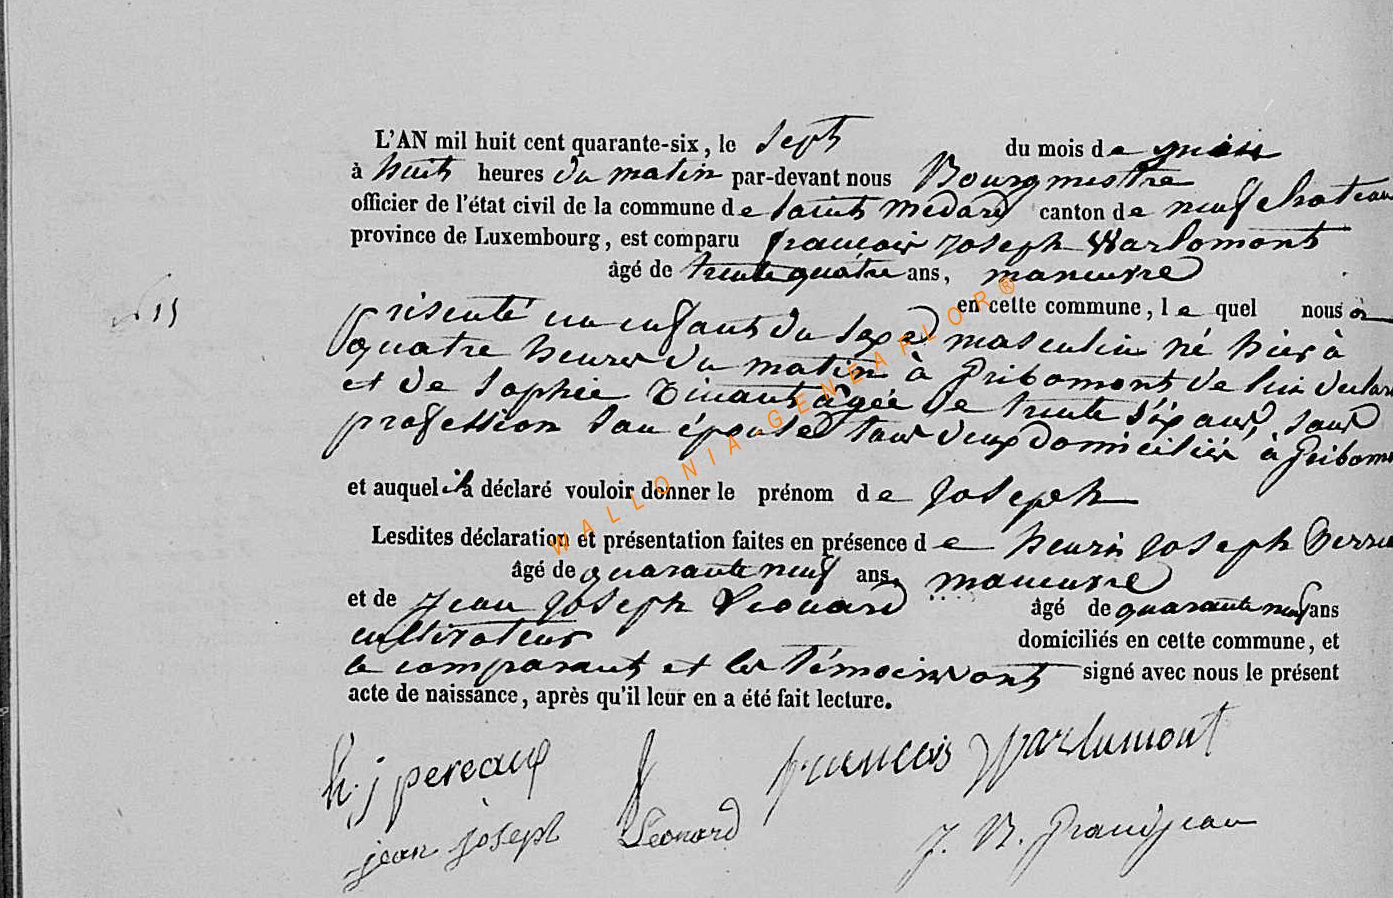 L'AN mil huit cent quarante-six, le sept du mois de juin
à huit heures du matin par-devant nous Bourgmestre
officier de l'état civil de la commune de Saint Médard canton de neufchateau
province de Luxembourg, est comparu françois Joseph Warlomont
âgé de trente quatre ans, maneuvre
en cette commune, lequel nous a
15
présenté un enfant du sexe masculin né hier à
quatre heures du matin à Gribomont de lui déclar
et de Sophie Dinant âgée de trente six ans, sans
profession son épouse tous deux domiciliés à Gribomo
et auquel il a déclaré vouloir donner le prénom de Joseph
Lesdites déclaration et présentation faites en présence de henri Joseph
âgé de quarante neuf ans, maneuvre
et de Jean Joseph Léonard âgé de quarante neuf ans
cultivateur domiciliés en cette commune, et
le comparant et les témoins ont signé avec nous le présent
acte de naissance, après qu'il leur en a été fait lecture.
h. j pereaux françois Warlomont
jean joseph Léonard J. N. Grandjean
WALLONIA-GENEAFLOR®